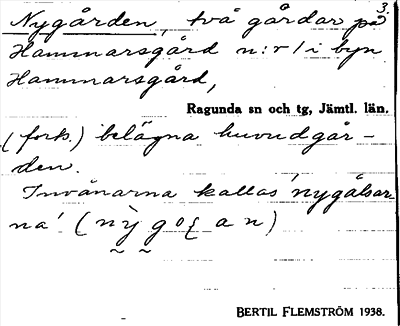 3.
Nygården, två gårdar på
Hammarsgård n:r 1 i byn
Hammarsgård,
Ragunda sn och tg, Jämtl. län.
(forts.) belägna huvudgår-
den.
Invånarna kallas 'nygålsar-
na'. (
BERTIL FLEMSTRÖM 1938.